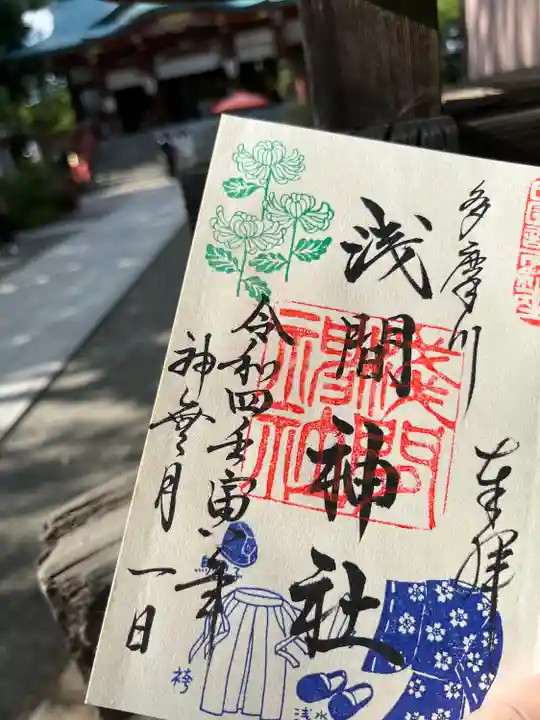 多摩川
奉拝
浅間神社
浅間神社
令和四壬寅年
神無月
一日
袴